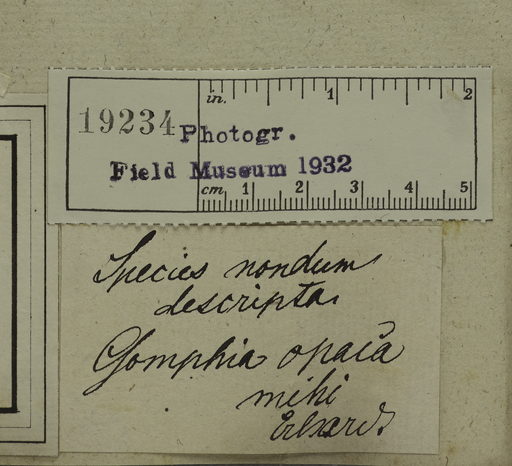 in. 1 2
19234
Photogr.
Field Museum 1932
cm 1 2 3 4 5
Species nondum
descripta.
Gomphia opaca
mihi